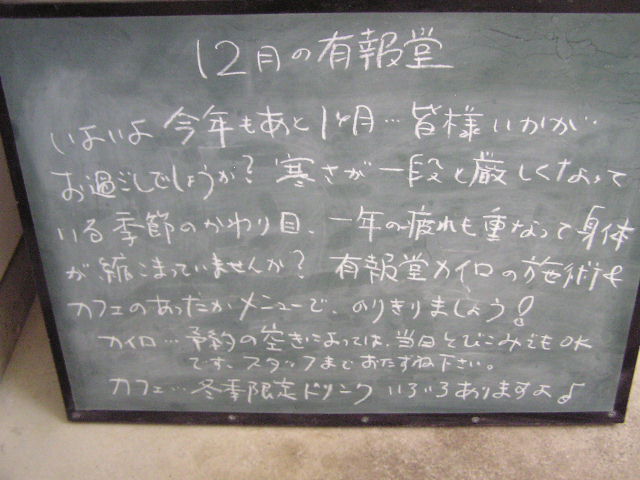 12月の有報堂
いよいよ今年もあと1ヶ月…皆様いかが
お過ごしでしょうか?寒さが一段と厳しくなって
いる季節のかわり目、一年の疲れも重なって身体
が縮こまっていませんか?有報堂カイロの施術を
カフェのあったかメニューで、のりきりましょう!
カイロ…予約の空きによっては、当日とびこみでもOK
です、スタッフまでおたずね下さい。
カフェ…冬季限定ドリンクいろいろありますよ♪